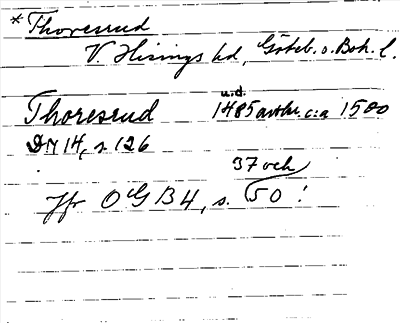 *Thoresrud
V. Hisings hd, Göteb. o. Boh. l.
u.d.
Thoresrud 1485 avskr. c:a 1500
DN 14, s. 126
37 och
Jfr OGB 4, s. 50!